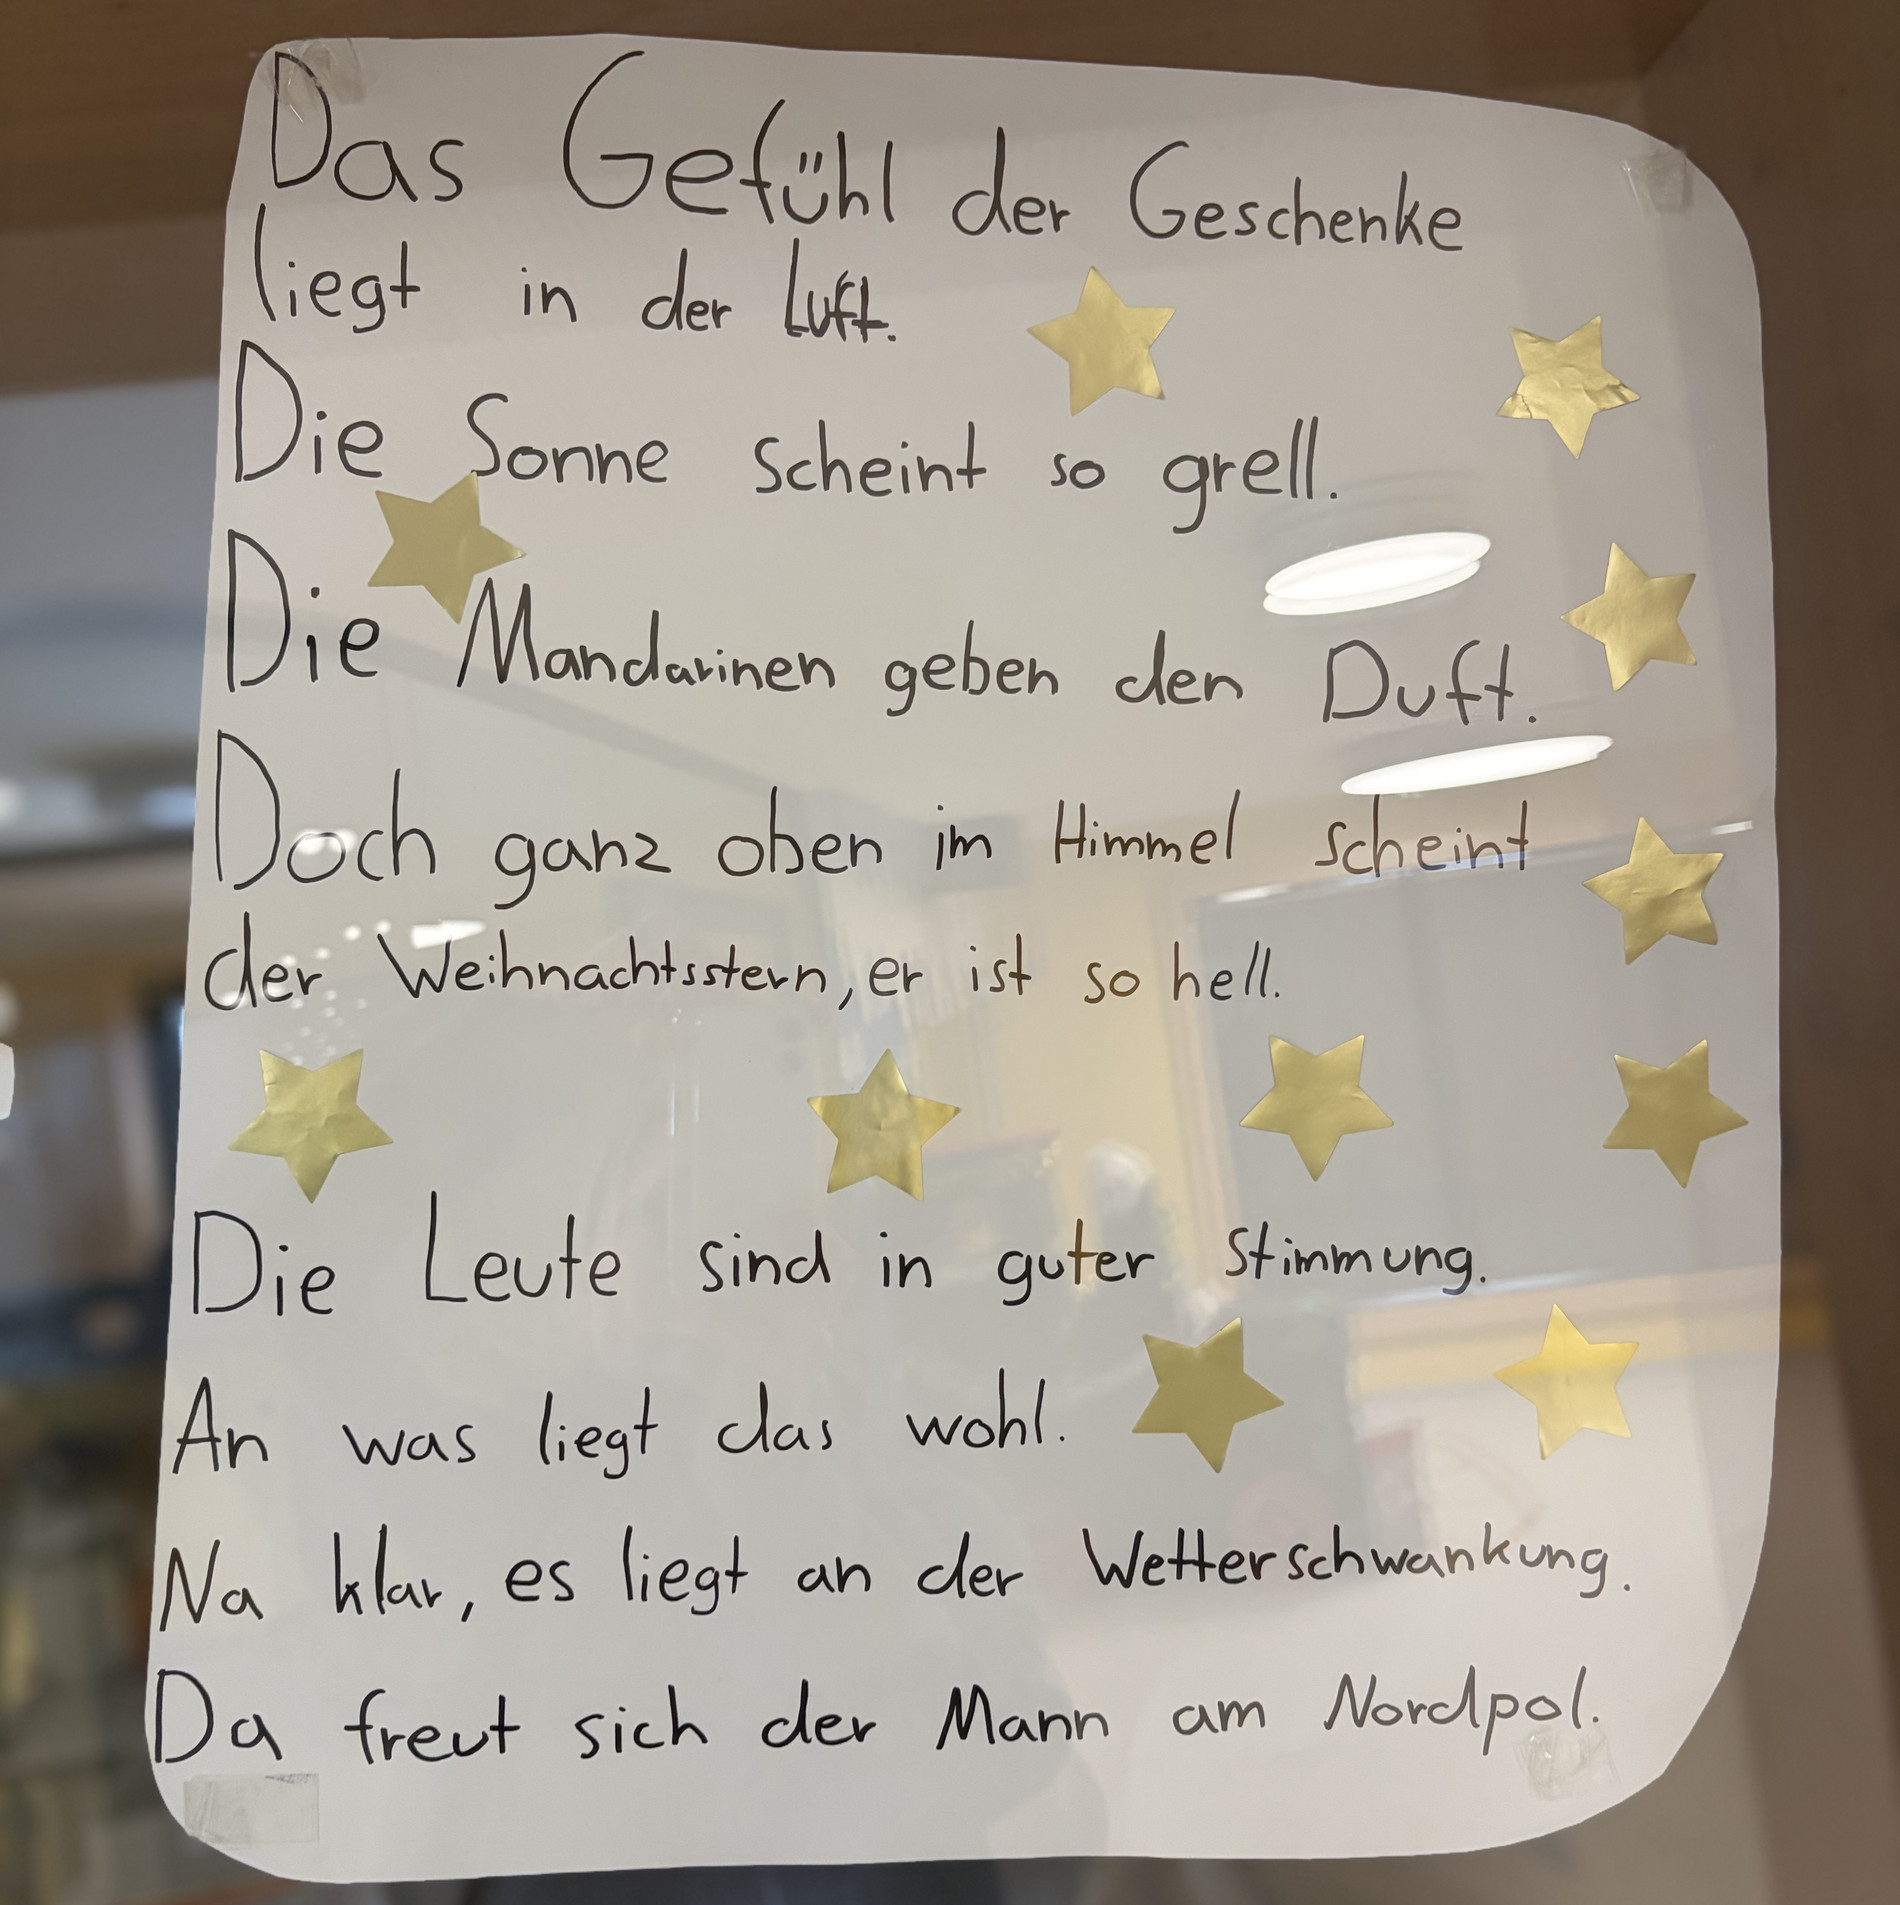 Das Gefühl der Geschenke
liegt in der Luft.
Die Sonne scheint so grell.
Die Mandarinen geben den Duft.
Doch ganz oben im Himmel scheint
der Weihnachtsstern, er ist so hell.
Die Leute sind in guter Stimmung.
An was liegt das wohl.
Na klar, es liegt an der Wetterschwankung.
Da freut sich der Mann am Nordpol.